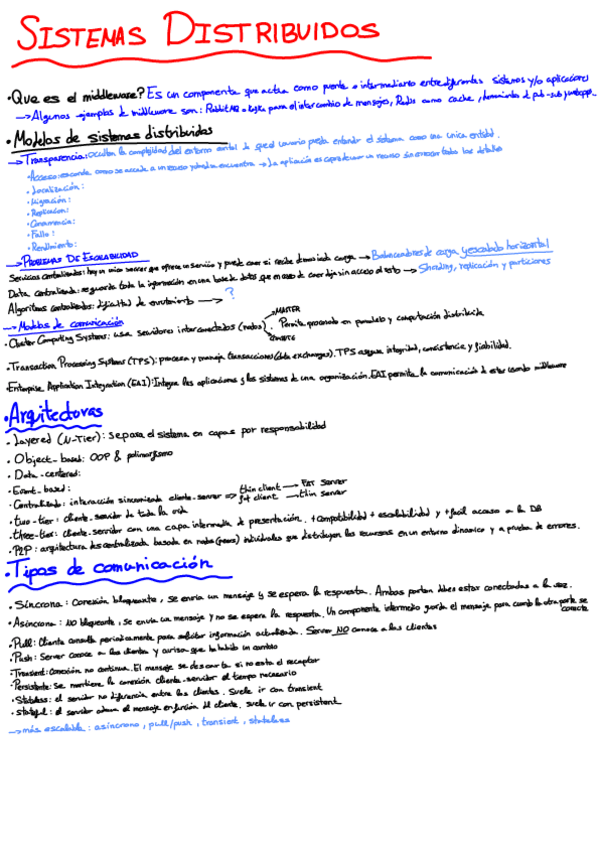 SISTEMAS DISTRIBUIDOS
• Que es el middleware? Es un componente que actua como puente o intermediario entre diferentes sistemas y/o aplicaciones
→ Algunos ejemplos de middleware son: RabbitMQ o Kafka para el intercambio de mensajes, Redis como cache,
• Modelos de sistemas distribuidos
→ Transparencia: ocultan la complejidad del entorno la que el usuario pueda entender el sistema como una unica entidad.
• Acceso: esconde como se accede a un recurso → La aplicación es capaz de usar un recurso sin todos los detalles
• Localización:
• Migración:
• Replicacion:
• Concurrencia:
• Fallo:
• Rendimiento:
→ PROBLEMAS DE ESCALABILIDAD
Servicios centralizados: hay un unico server que ofrece un servicio y puede caer si recibe demasiada carga → Balanceadores de carga y escalado horizontal
Data centralizada: se guarda toda la información en una base de datos que en caso de caer deja sin acceso al resto → Sharding, replicación y particiones
Algoritmos centralizados: dificultad de enrutamiento → ?
→ Modelos de comunicación
• Cluster Computing Systems: usa servidores interconectados (nodos). Permite procesado en paralelo y computación distribuida
MASTER
• Transaction Processing Systems (TPS): procesa y maneja transacciones (data exchanges). TPS asegura integridad, consistencia y fiabilidad.
• Enterprise Application Integration (EAI): Integra las aplicaciones y los sistemas de una organización. EAI permite la comunicación de estas usando middleware
• Arquitecturas
• Layered (N-Tier): separa el sistema en capas por responsabilidad
• Object-based: OOP & polimorfismo
• Data-centered:
• Event-based:
• Centralizada: interacción sincronizada cliente-server => thin client → Fat server
fat client → thin server
• two-tier: cliente-servidor de toda la vida
• three-tier: cliente-servidor con una capa intermedia de presentación. +compatibilidad +escalabilidad y +fácil acceso a la DB
• P2P: arquitectura descentralizada basada en nodos (peers) individuales que distribuyen los recursos en un entorno dinamico y a prueba de errores.
• Tipos de comunicación
• Síncrona: Conexión bloqueante, se envia un mensaje y se espera la respuesta. Ambas partes deben estar conectadas a la vez.
• Asíncrona: NO bloqueante, se envia un mensaje y no se espera la respuesta. Un componente intermedio guarda el mensaje para cuando la otra parte se conecte
• Pull: Cliente consulta periodicamente para solicitar información actualizada. Server NO conoce a los clientes
• Push: Server conoce a los clientes y avisa que ha habido un cambio
• Transient: conexión no continua. El mensaje se descarta si no esta el receptor
• Persistente: se mantiene la conexión cliente-servidor el tiempo necesario
• Stateless: el servidor no diferencia entre los clientes. Suele ir con transient
• stateful: el servidor el mensaje en función del cliente. suele ir con persistent
→ más escalable: asíncrono, pull/push, transient, stateless